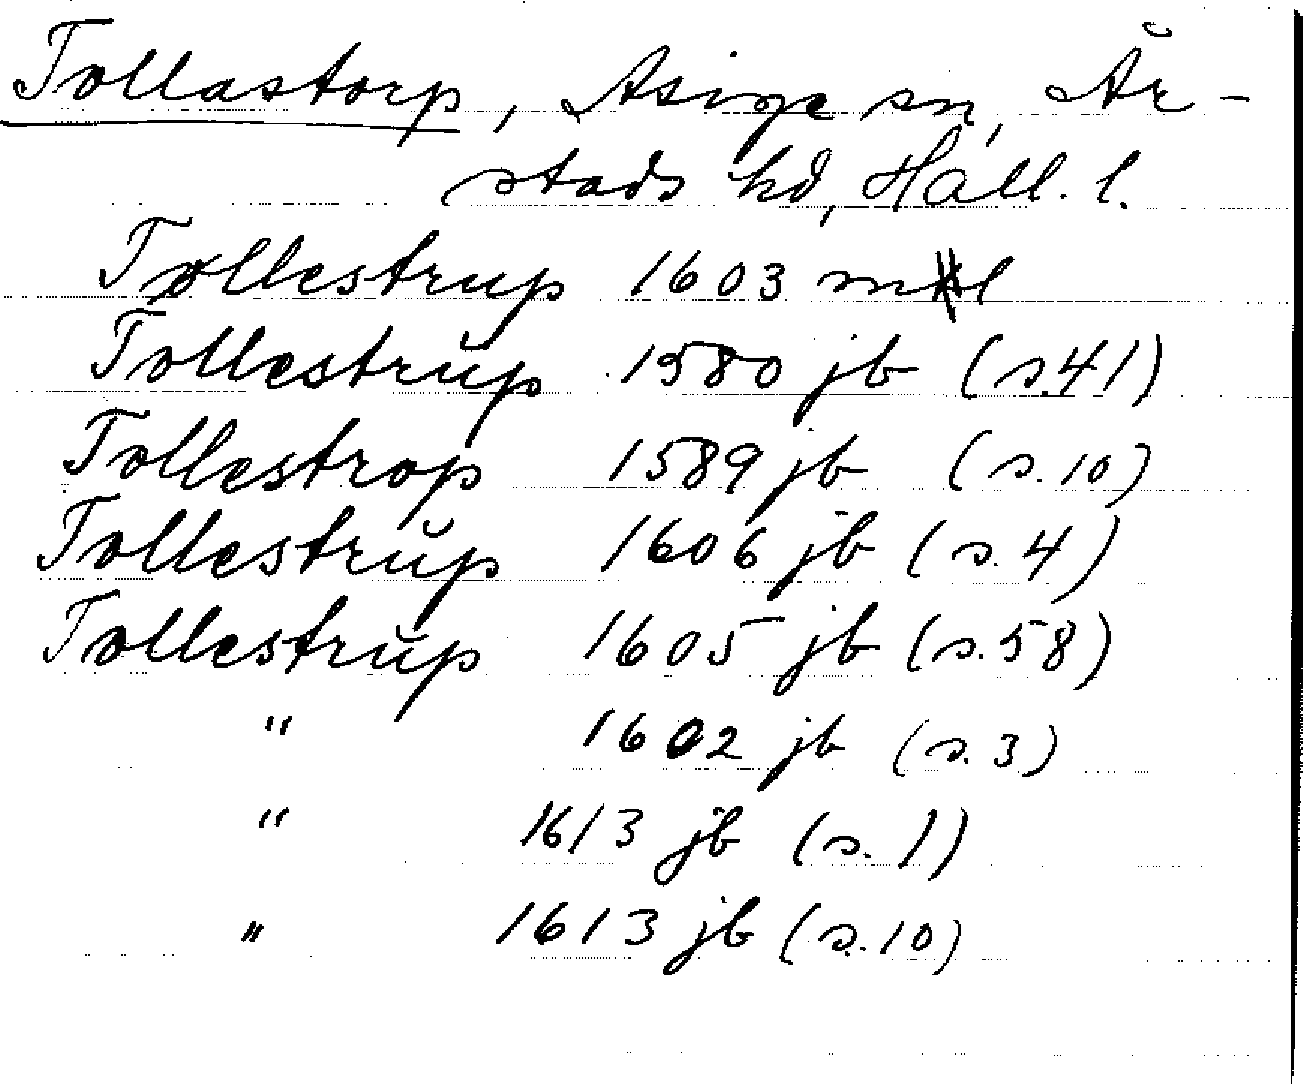 Tollastorp, Asige sn, År-
stads hd, Hall. l.
Tollestrup 1603 mtl
Tollestrŭp 1580 jb (s.41)
Tollestrop 1589 jb (s.10)
Tollestrŭp 1606 jb (s.4)
Tollestrŭp 1605 jb (s.58)
" 1602 jb (s.3)
" 1613 jb (s.1)
" 1613 jb (s.10)